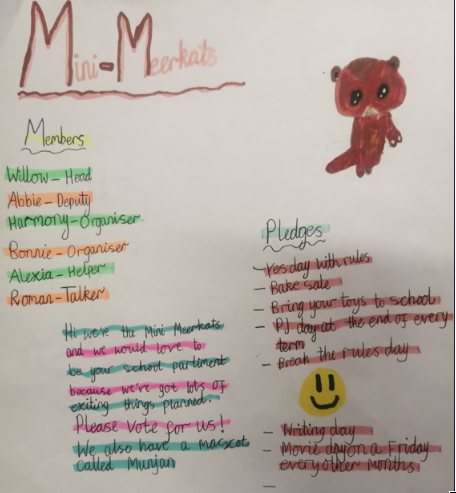 Mini-Meerkats
Members
Willow-Head
Abbie-Deputy
Harmony-Organiser
Bonnie-Organiser
Alexia-Helper
Roman-Talker
Hi we're the Mini Meerkats
and we would love to
be your school parliment
because we've got lots of
exiting things planned.
Please Vote for us!
We also have a mascot
called Munjan
Pledges
- Yes day with rules
- Bake sale
- Bring your toys to school
- PJ day at the end of every
term
- Break the rules day
- Writing day
- Movie day on a Friday
every other months
-